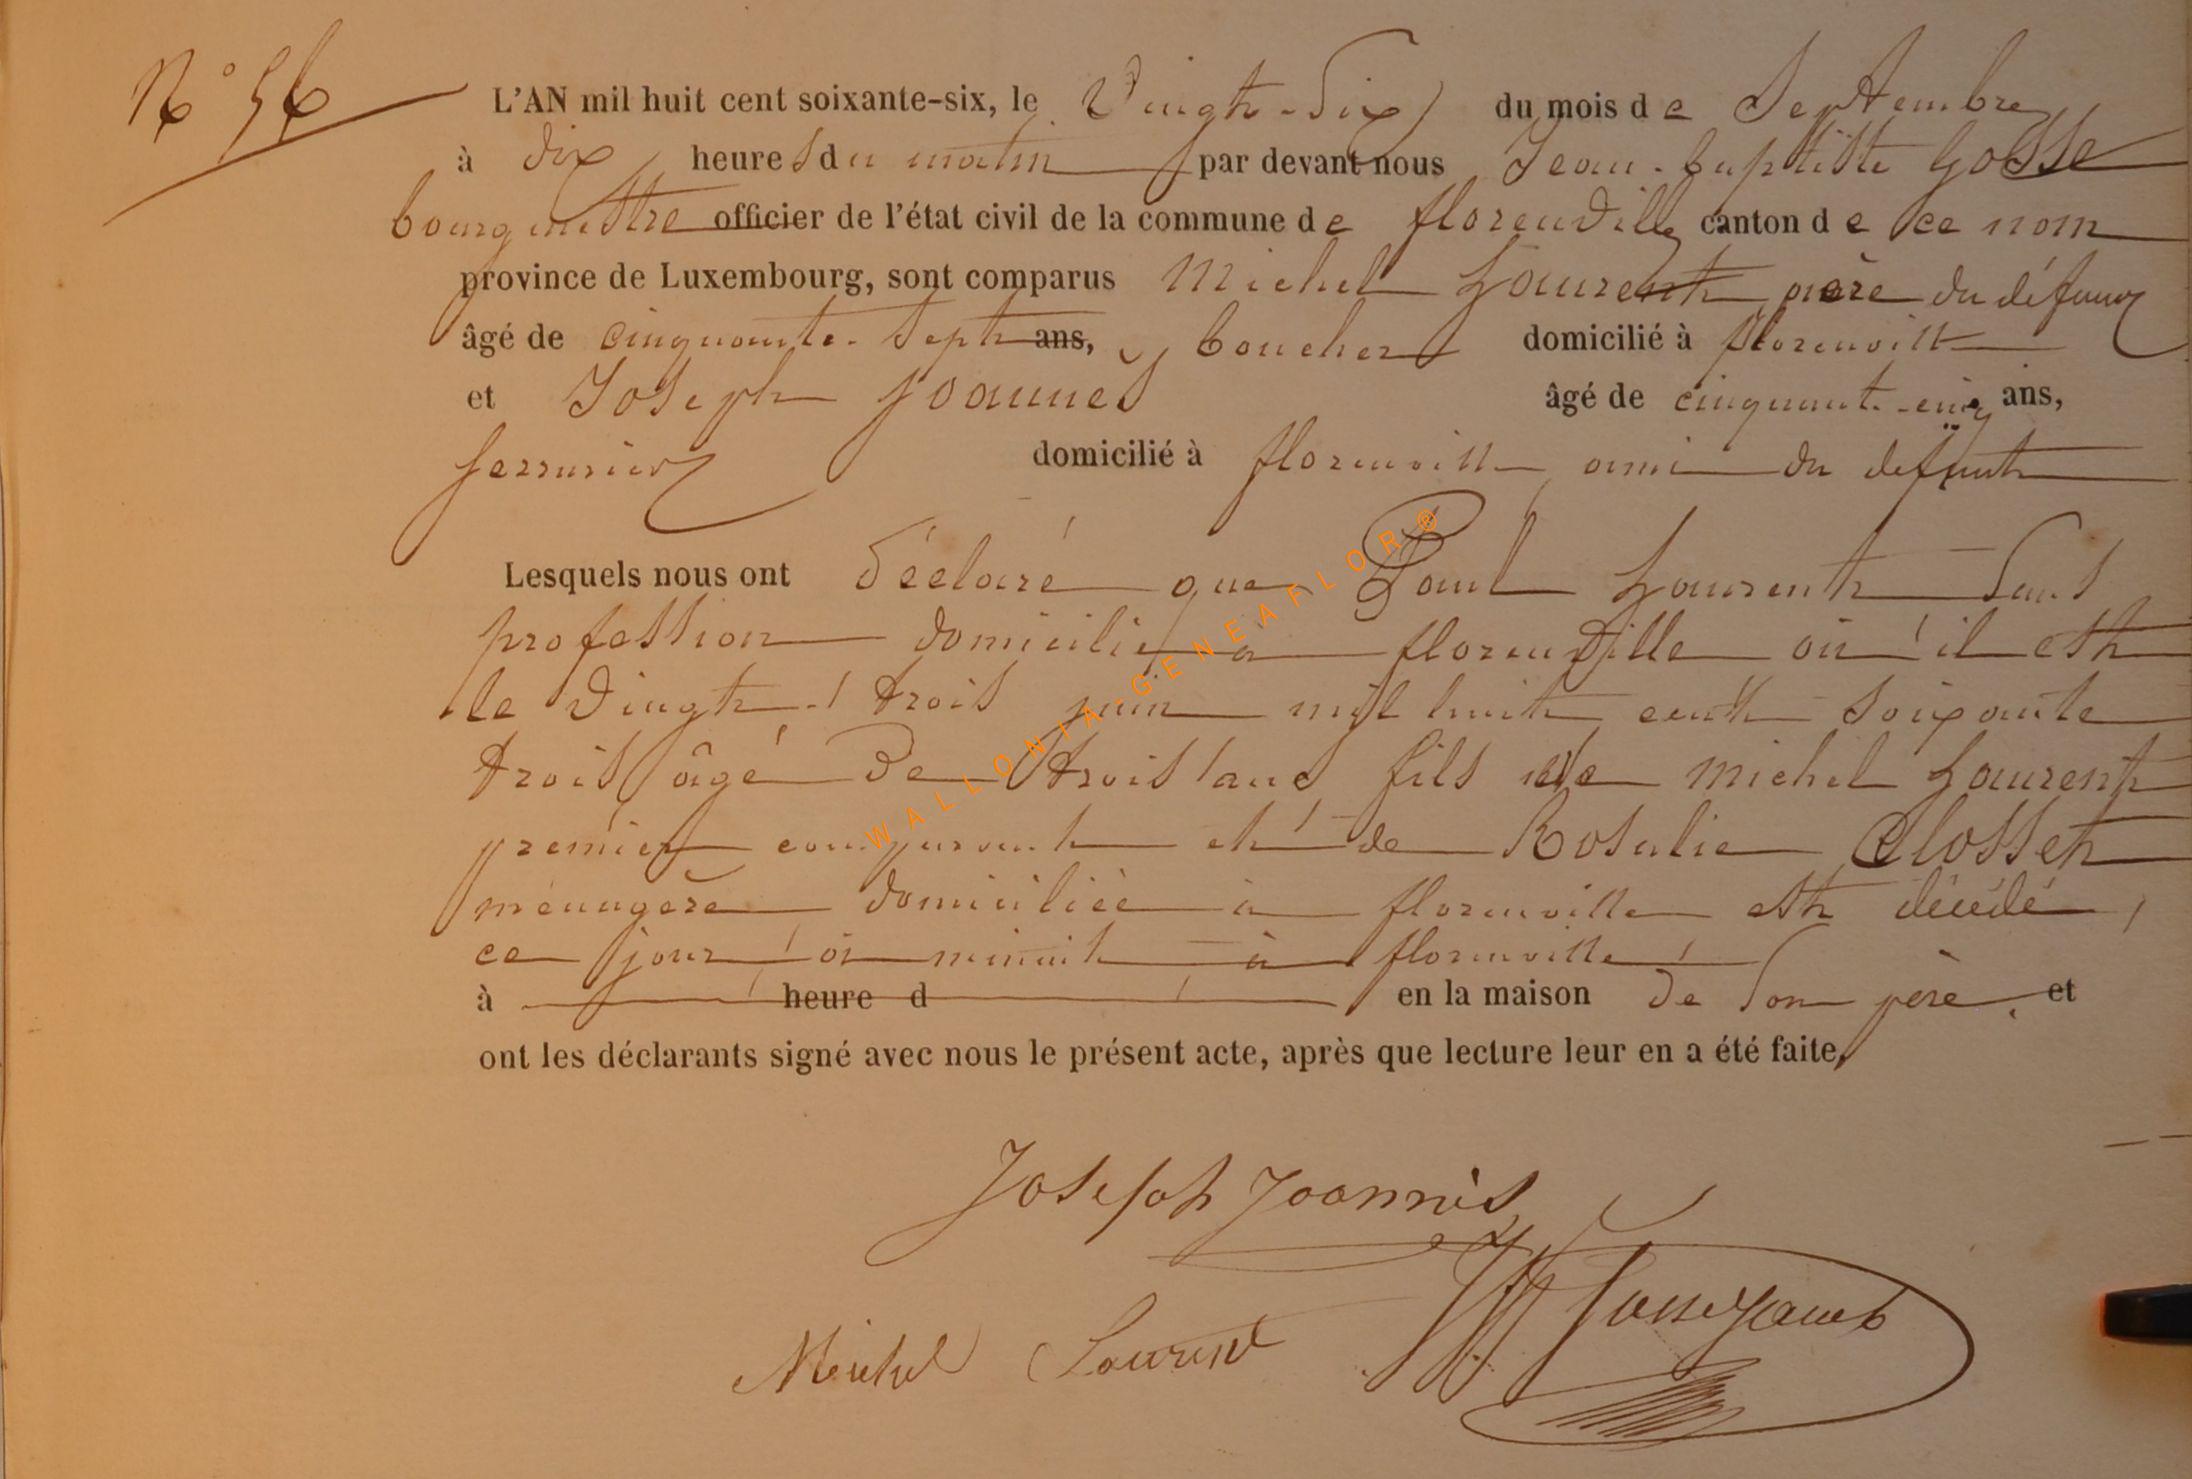 N° 56
L'AN mil huit cent soixante-six, le Vingt-Six du mois de Septembre
à dix heures du matin par devant nous Jean-baptiste Gosse
bourgmestre officier de l'état civil de la commune de florenville canton de ce nom
province de Luxembourg, sont comparus Michel Laurent père du défunt
âgé de cinquante-sept ans, boucher domicilié à florenville
et Joseph Joannes âgé de cinquante-cinq ans,
serrurier domicilié à florenville ami du defunt
Lesquels nous ont déclaré que Paul Laurent Sans
profession domicilié a florenville où il est
le vingt-trois juin mil huit cent soixante
trois âgé de trois ans fils de michel Laurent
premier comparant et de Rosalie Closset
ménagère domiciliée à florenville est décédé
ce jour à minuit à florenville
à heure d en la maison de son père, et
ont les déclarants signé avec nous le présent acte, après que lecture leur en a été faite,
Joseph Joannès
Michel Laurent
WALLONIA-GENEAFLOR®